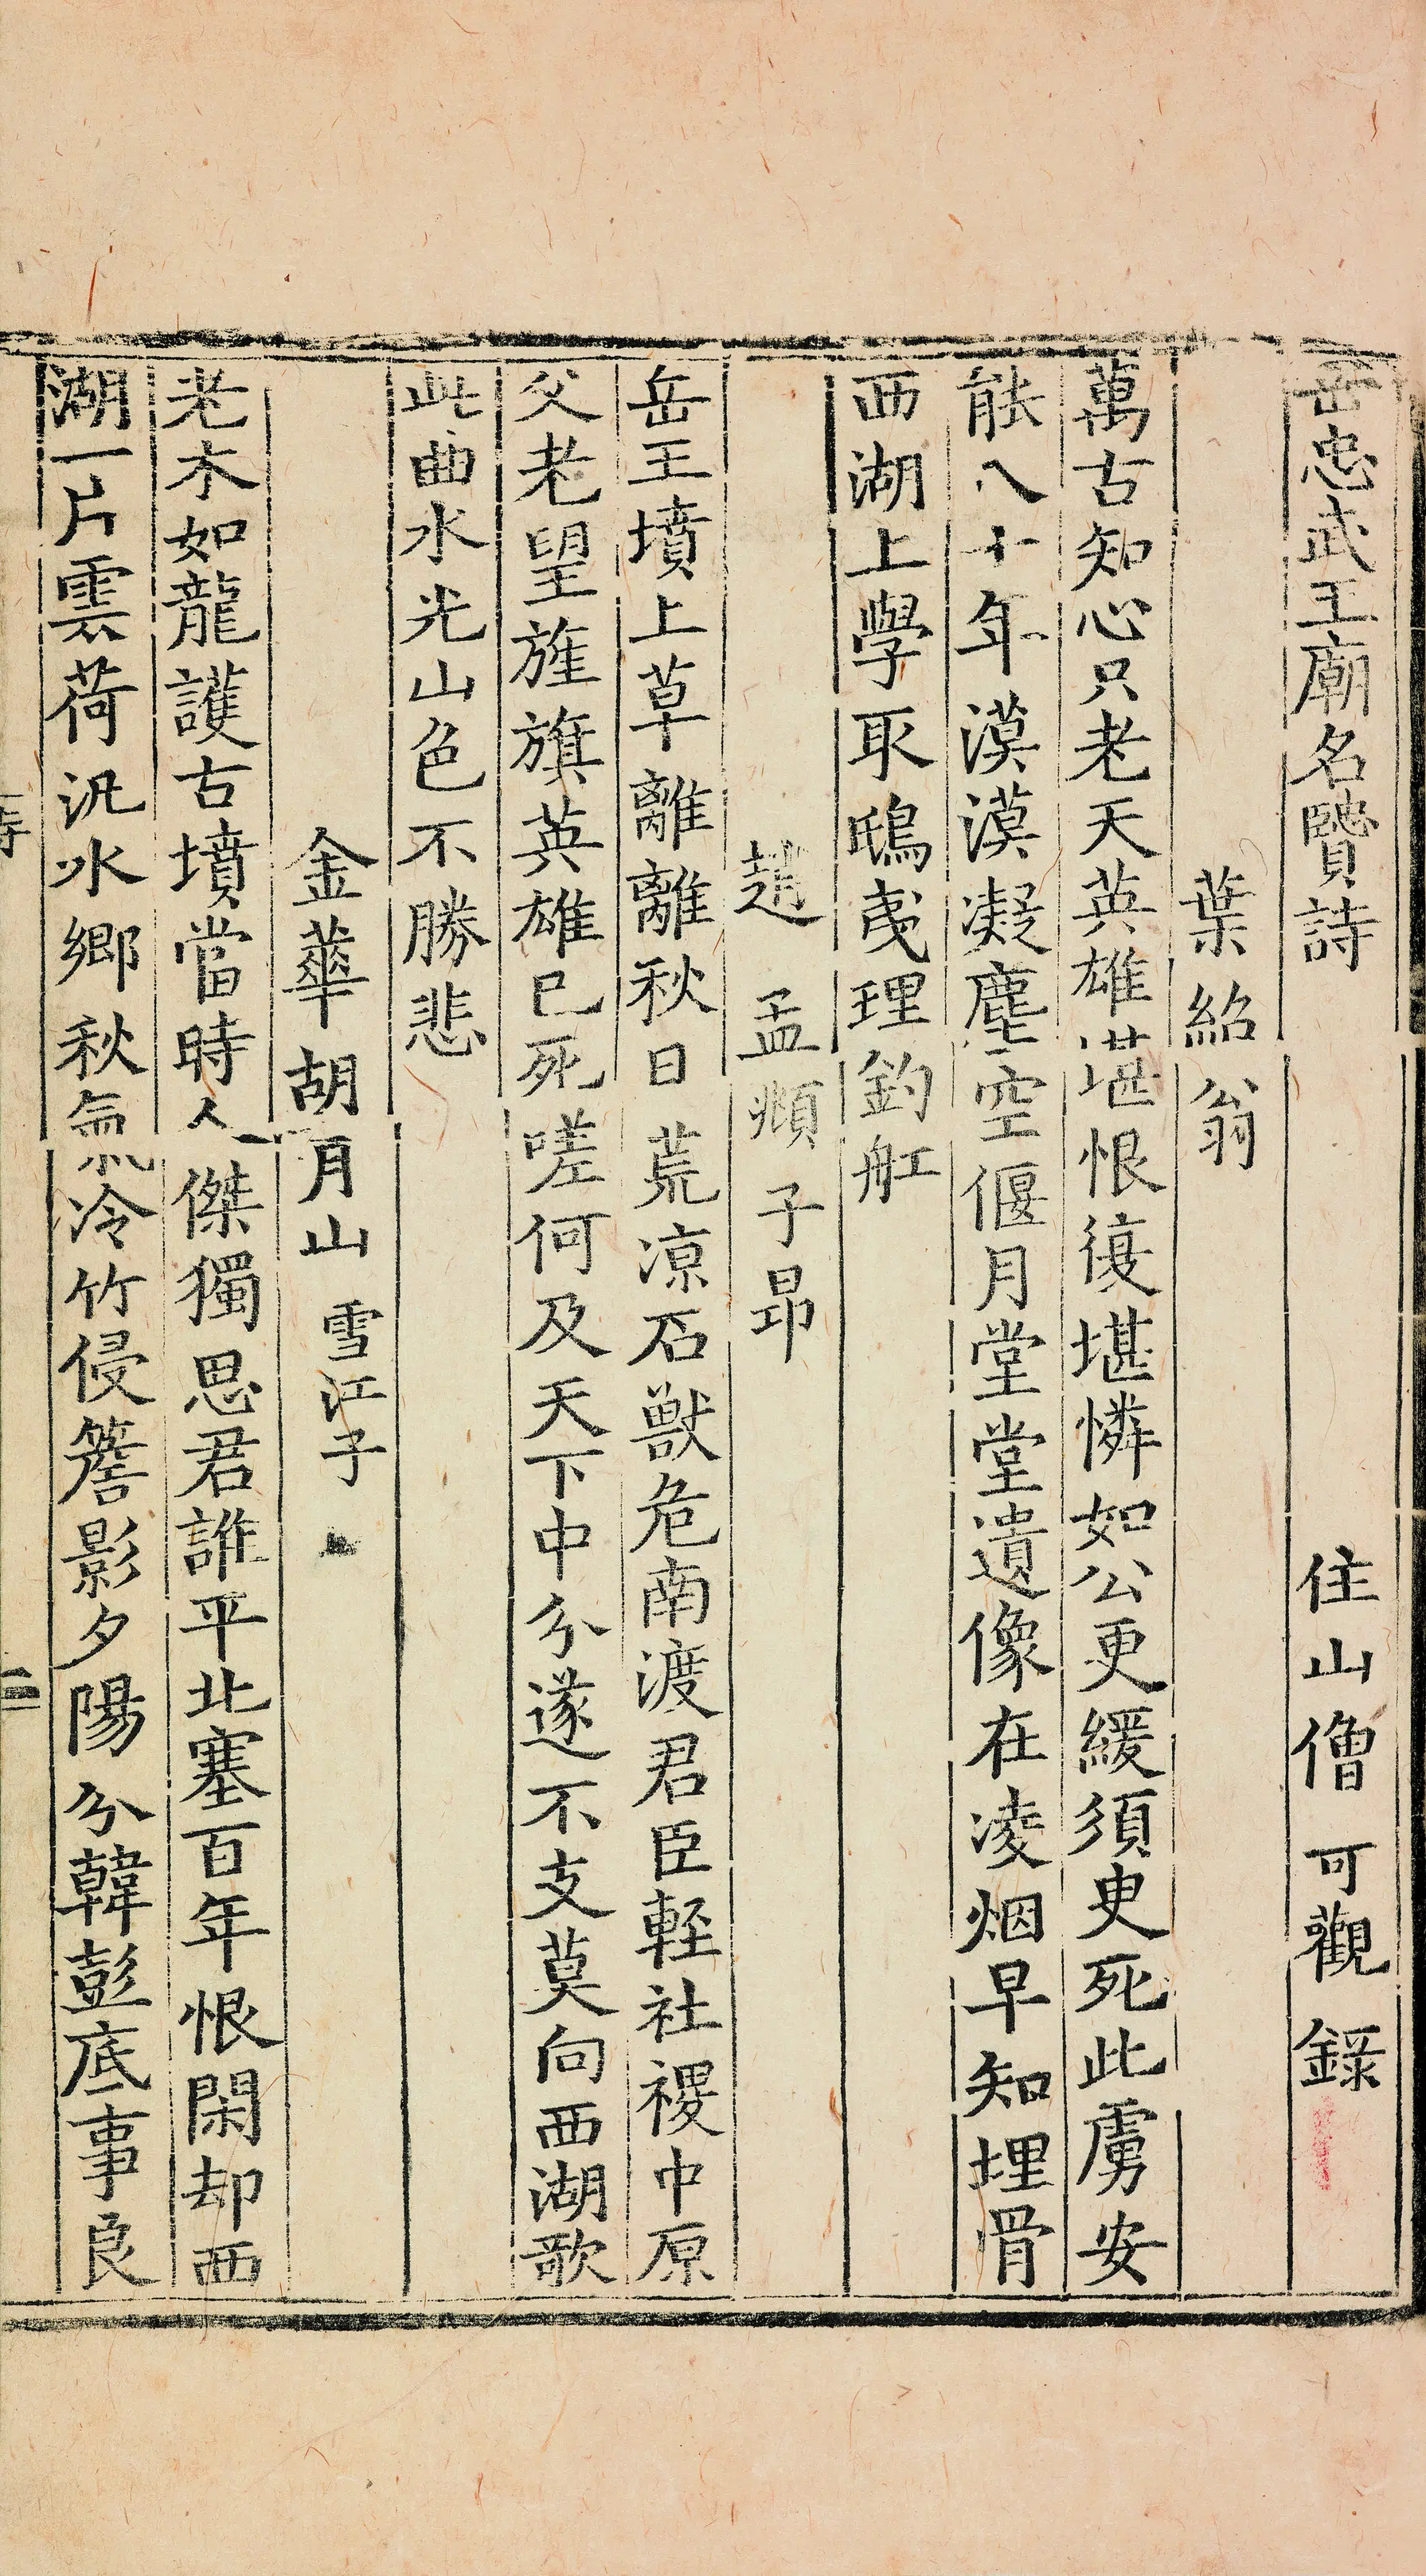 岳忠武王廟名賢詩　住山僧可觀錄
葉紹翁
萬古知心只老天英雄堪恨復堪憐如公更緩須臾死此虜安
能八十年漠漠凝塵空偃月堂堂遺像在凌烟早知埋骨
西湖上學取鴟夷理釣舡
趙孟頫子昂
岳王墳上草離離秋日荒凉石獸危南渡君臣輊社稷中原
父老望旌旗英雄已死嗟何及天下中分遂不支莫向西湖歌
此曲水光山色不勝悲
金華胡月山雪江子
老木如龍護古墳當時人傑獨思君誰平北塞百年恨閑却西
湖一片雲荷汎水鄉秋氣冷竹侵簷影夕陽分韓彭底事良
詩
二